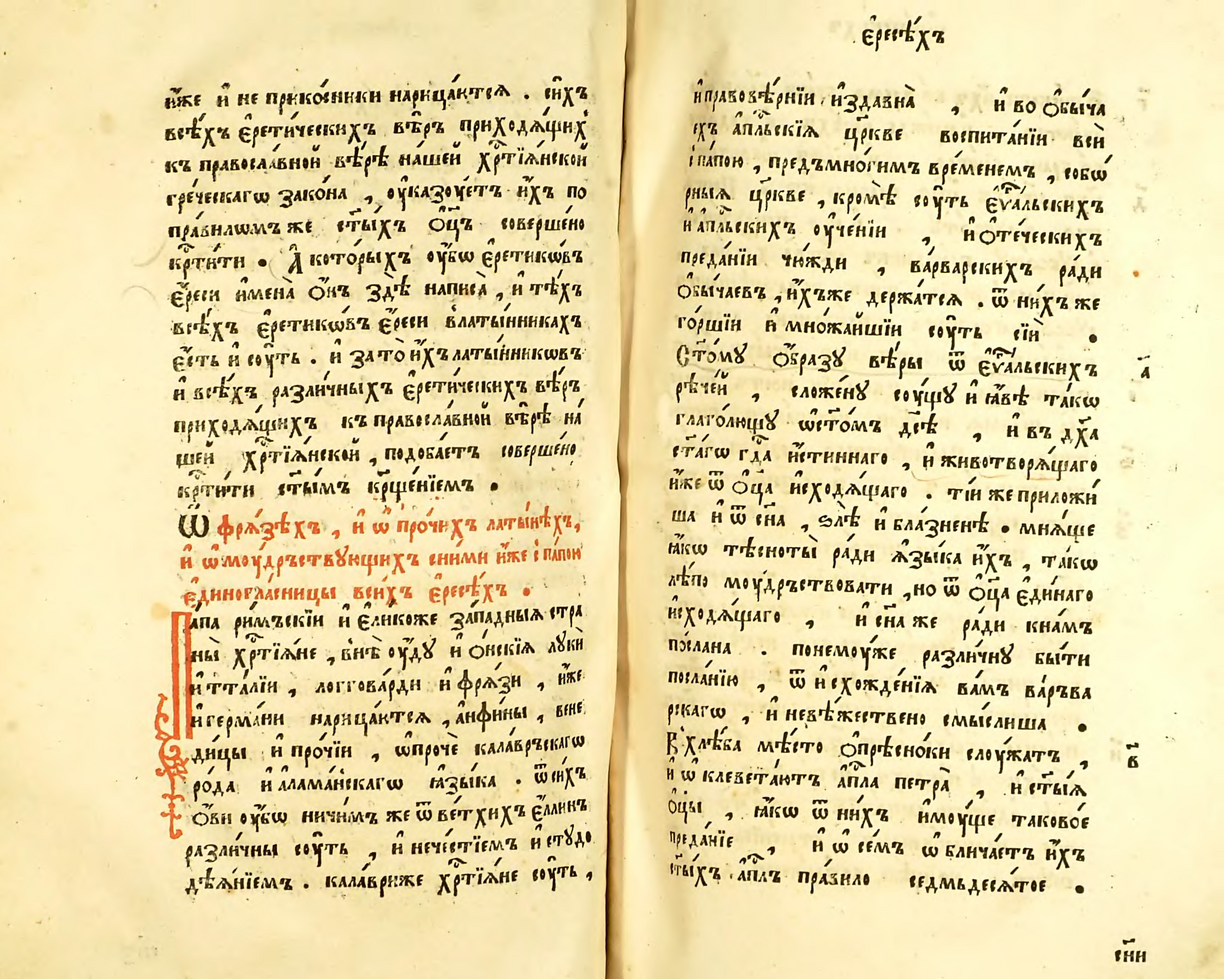 и҆́же и҆ не прико́сники нарица́ютсѧ . си́хъ
всѣ́хъ є҆рети́ческихъ вѣ́ръ приходѧ́щих̾
къ правосла́вной вѣ́рѣ на́шей хр҇тїѧ́нской
гре́ческагѡ зако́на , оу҆казоу́етъ и҆́хъ по
пра́вилѡмъ же ст҃ы́хъ ѻ҆ц҃ъ соверше́но
кр҇ти́ти . А҆ кото́рыхъ оу҆́бѡ є҆ретикѡ́въ
є҆́реси и҆мена̀ ѻ҆́нъ здѣ̀ написа̀ , и҆ тѣ́хъ
всѣ́хъ є҆ретикѡ́въ є҆́реси в̾латы́нникахъ
є҆́сть и҆ соу́ть . и҆ за то̀ и҆́хъ латы́нникѡвъ
и҆ всѣ́хъ разли́чныхъ є҆рети́ческихъ вѣ́ръ
приходѧ́щихъ къ правосла́вной вѣ́рѣ на́
шей хр҇тїѧ́нской , подоба́етъ соверше́но
кр҇ти́ти ст҃ы́мъ кр҃ще́нїемъ .
Ѿ фрѧ́зѣхъ , и҆ ѡ҆ про́чихъ латы́нѣхъ,
и҆ ѡ҆ моу́дръствꙋющихъ сни́ми и҆́же с̾ па́пою
є҆диногла́сницы всѝхъ є҆ресѣ́хъ .
Па́па ри́мъскїи и҆ є҆ли́коже за́падныѧ стра
ны̀ хр҇тїѧ́не , внѣ̀ оу҆́ду и҆ ѻ҆́нскїѧ лꙋкѝ
и҆тта́лїи , логгова́рди и҆ фрѧ́зи , и҆́же
и҆ герма́ни нарица́ютсѧ , а҆нфи́ны , вене
ди́цы и҆ про́чїи , ѡ҆про́че кала́връскагѡ
ро́да и҆ а҆лама́нскагѡ ꙗ҆зы́ка . ѿ си́хъ
Ѻ҆́ви оу҆́бѡ ничи́мъ же ѿ ве́тхихъ є҆́ллинъ
разли́чны соу́ть , и҆ нече́стїемъ и҆ стꙋдо
дѣѧ́нїемъ . кала́вриже хр҇тїѧ́не соу́ть ,
є҆ресѣ́хъ
и҆ правовѣ́рнїи и҆здавна̀ , и҆ во ѻ҆бы́ча
ехъ а҆пⷭ҇льскїѧ цр҃кве воспита́нїи всѝ
с̾ па́пою , предъ мно́гимъ вре́менемъ , собѡ́
рныѧ цр҃кве , кро́мѣ соу́ть є҆ѵⷢ҇альскихъ
и҆ а҆пⷭ҇льскихъ оу҆че́нїи , и҆ ѻ҆те́ческихъ
преда́нїи чю́жди , ва́рварскихъ ра́ди
ѻ҆бы́чаевъ , и҆́хъже держа́тсѧ . ѿ ни́хъ же
го́ршїи и҆ мно́жайшїи соу́ть сїѝ .
Ст҃о́мꙋ ѻ҆́бразꙋ вѣ́ры ѿ є҆ѵⷢ҇альскихъ а҃
рѣ́чей , сложе́нꙋ соу́щꙋ и҆ ꙗ҆́вѣ та́кѡ
глаго́лющꙋ ѡ҆ ст҃о́мъ дс҃ѣ , и҆ въ дх҃а
ст҃а́гѡ гдⷭ҇а и҆́стиннаго , и҆ животворѧ́щаго
и҆́же ѿ ѻ҆ц҃а и҆сходѧ́щаго . ті́и же приложи́
ша и҆ ѿ сн҃а , ѕлѣ̀ и҆ бла́зненѣ . мнѧ́ще
ꙗ҆́кѡ тѣсноты̀ ра́ди ꙗ҆зы́ка и҆́хъ , та́кѡ
лѣ́по моу́дръствовати , но ѿ ѻ҆ц҃а є҆ди́наго
и҆сходѧ́щаго , и҆ сн҃а же ра́ди кна́мъ
по́слана . понемоу́же разли́чнꙋ бы́ти
посла́нїю , ѿ и҆схожде́нїѧ ва́мъ ва́ръва
рскагѡ , и҆ невѣ́жествено смы́слиша .
В̾ хлѣ́ба мѣ́сто ѻ҆прѣсно́ки слоу́жатъ , в҃
и҆ ѡ҆клевета́ютъ а҆пⷭ҇ла петра̀ , и҆ ст҃ы́ѧ
ѻ҆ц҃ы̀ , ꙗ҆́кѡ ѿ ни́хъ и҆моу́ще таково́е
преда́нїе , и҆ ѡ҆ се́мъ ѡ҆блича́етъ и҆́хъ
ст҃ы́хъ а҆пⷭ҇лъ пра́вило седмьдесѧ́тое .
сн҃и